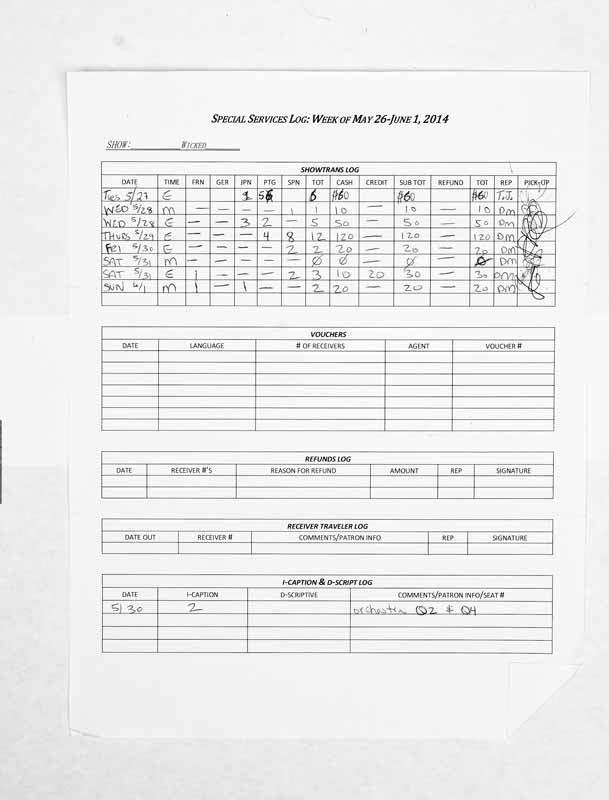 SPECIAL SERVICES LOG: WEEK OF MAY 26-JUNE 1, 2014
SHOW: WICKED
SHOWTRANS LOG
DATE TIME FRN GER JPN PTG SPN TOT CASH CREDIT SUB TOT REFUND TOT REP PICK-UP
Tues 5/27 E 1 5 6 $60 $60 $60 T.J.
WED 5/28 M — — — — 1 1 10 — 10 — 10 DM
WED 5/28 E — — 3 2 — 5 50 — 50 — 50 DM
THURS 5/29 E — — — 4 8 12 120 — 120 — 120 DM
FRI 5/30 E — — — — 2 2 20 — 20 — 20 DM
SAT 5/31 M — — — — — Ø Ø — Ø — Ø DM
SAT 5/31 E 1 — — — 2 3 10 20 30 — 30 DM
SUN 6/1 M 1 — 1 — — 2 20 — 20 — 20 DM
VOUCHERS
DATE LANGUAGE # OF RECEIVERS AGENT VOUCHER #
REFUNDS LOG
DATE RECEIVER #'S REASON FOR REFUND AMOUNT REP SIGNATURE
RECEIVER TRAVELER LOG
DATE OUT RECEIVER # COMMENTS/PATRON INFO REP SIGNATURE
I-CAPTION & D-SCRIPT LOG
DATE I-CAPTION D-SCRIPTIVE COMMENTS/PATRON INFO/SEAT #
5/30 2 orchestra Q2 & Q4